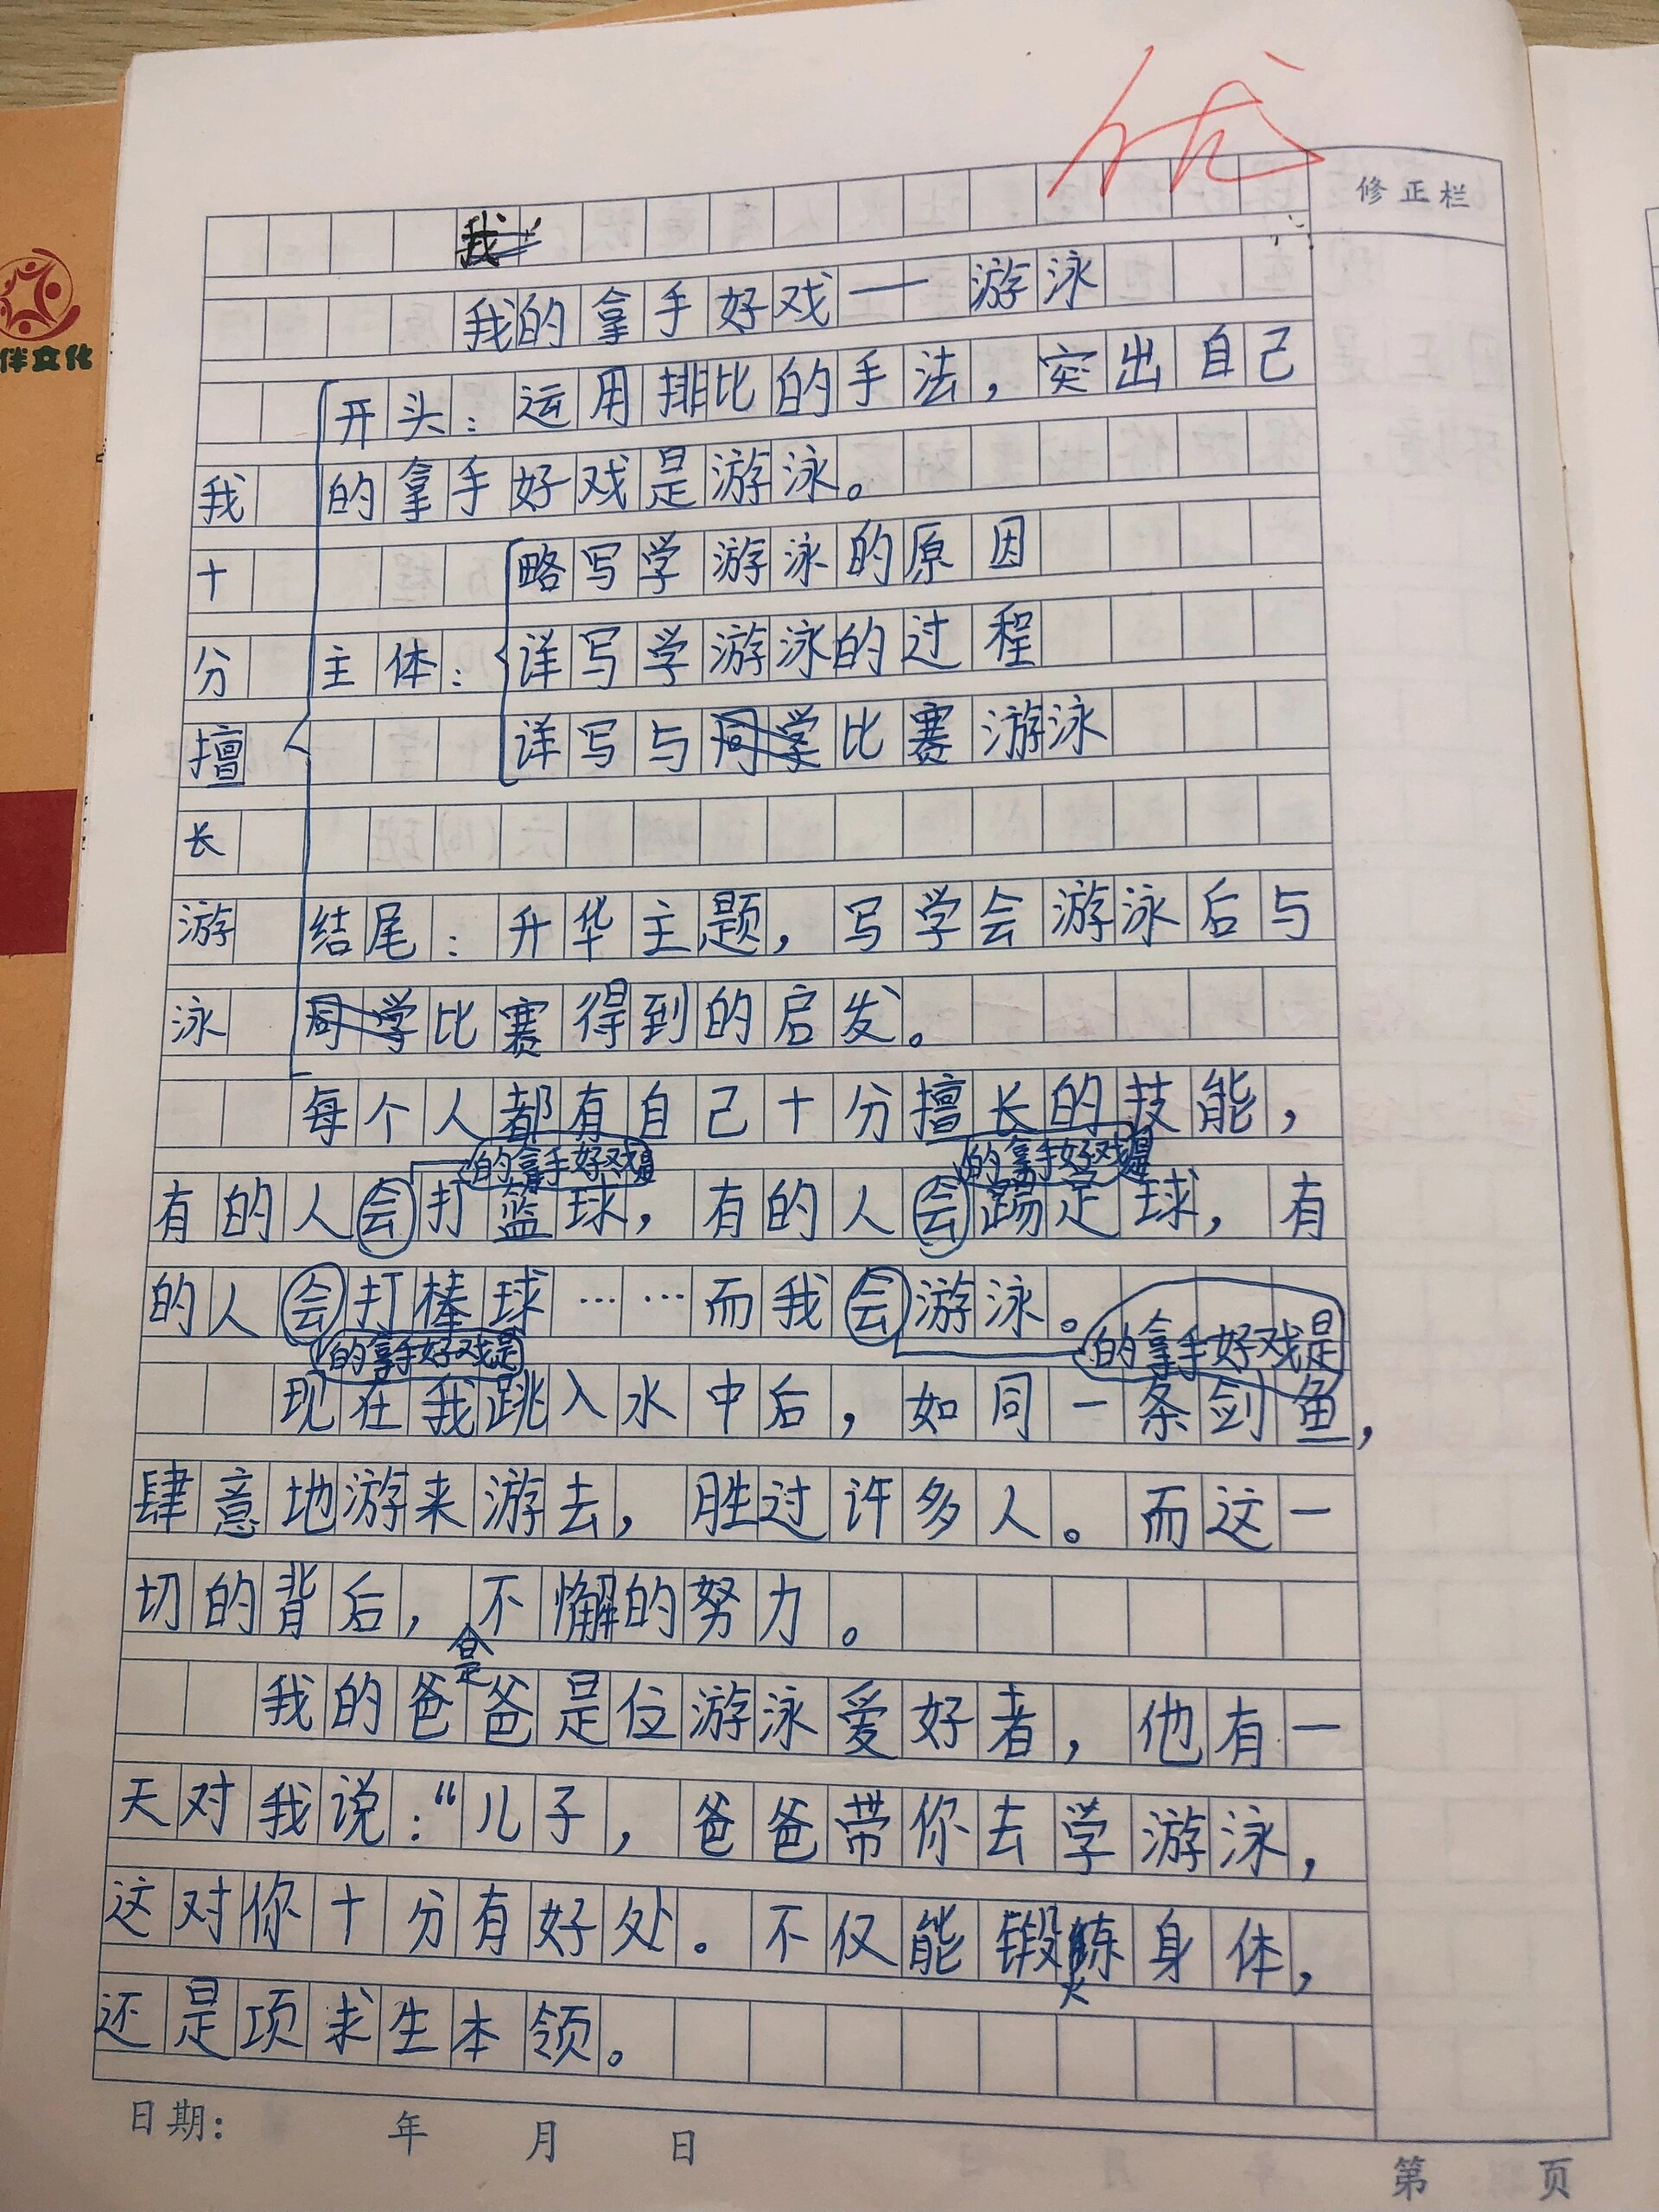 优
修正栏
伴文化
我
我的拿手好戏——游泳
开头：运用排比的手法，突出自己
我 的拿手好戏是游泳。
十 略写学游泳的原因
分 主体：详写学游泳的过程
擅 详写与同学比赛游泳
长
游 结尾：升华主题，写学会游泳后与
泳 同学比赛得到的启发。
每个人都有自己十分擅长的技能，
的拿手好戏是 的拿手好戏是
有的人会打篮球，有的人会踢足球，有
的人会打棒球……而我会游泳。
的拿手好戏是 的拿手好戏是
现在我跳入水中后，如同一条剑鱼，
肆意地游来游去，胜过许多人。而这一
切的背后，不懈的努力。
是
我的爸爸是位游泳爱好者，他有一
天对我说：“儿子，爸爸带你去学游泳，
这对你十分有好处。不仅能锻炼身体，
还是项求生本领。
日期： 年 月 日
第 页